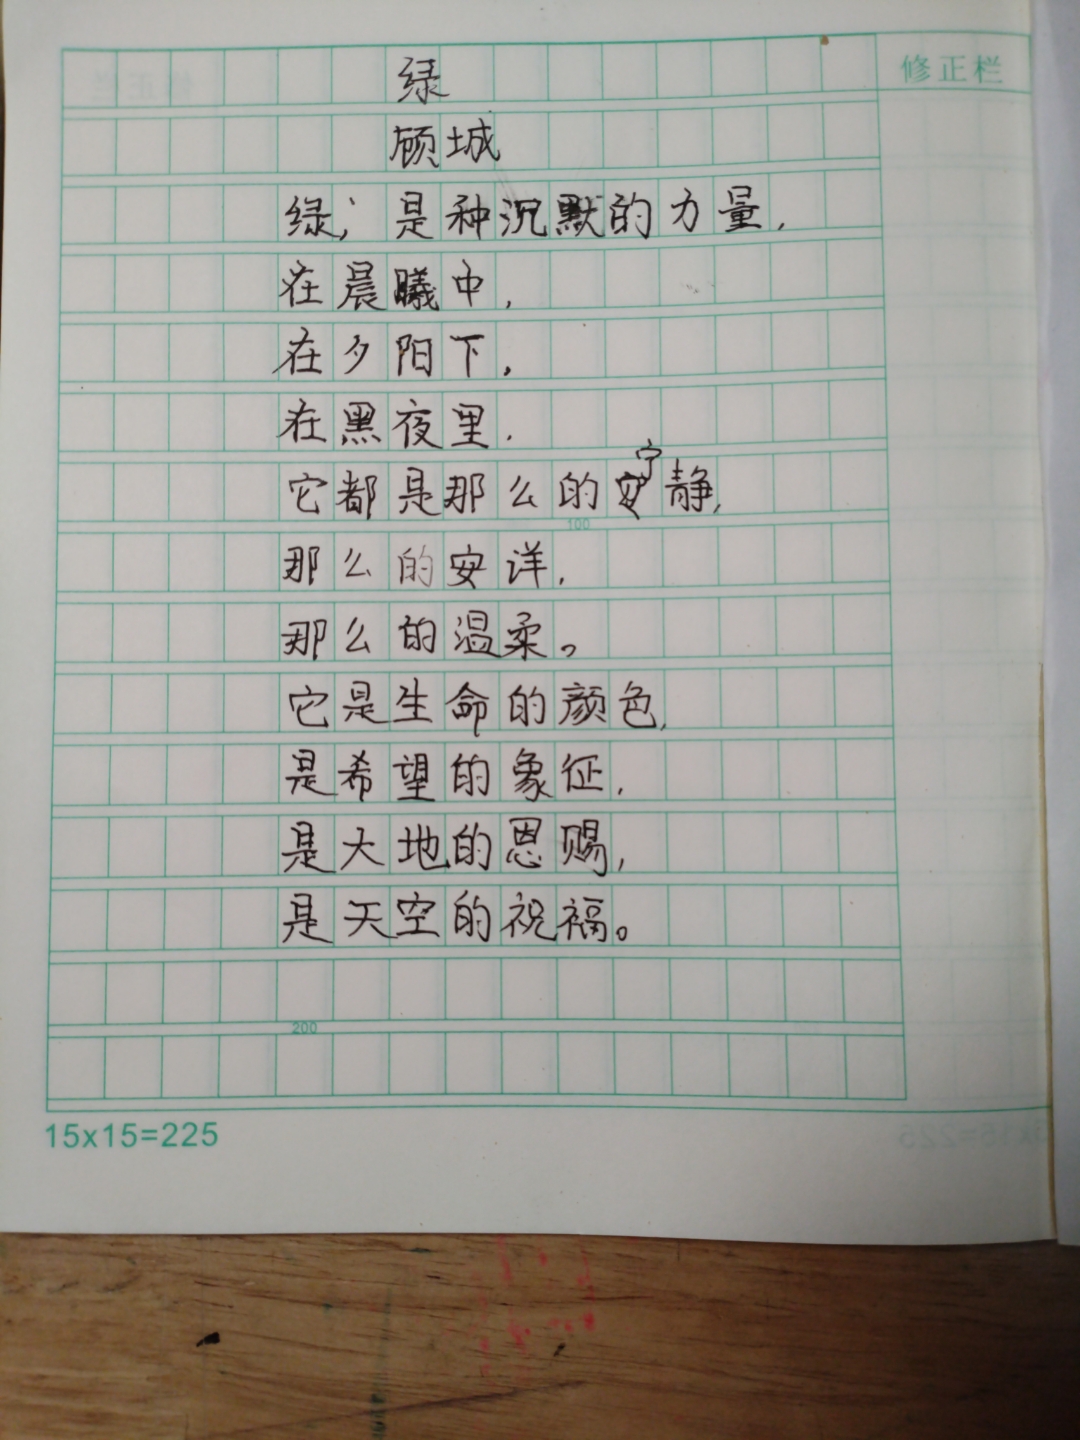 修正栏
绿
顾城
绿，是种沉默的力量，
在晨曦中，
在夕阳下，
在黑夜里，
它都是那么的宁静，
100
那么的安详，
那么的温柔。
它是生命的颜色，
是希望的象征，
是大地的恩赐，
是天空的祝福。
200
15x15=225